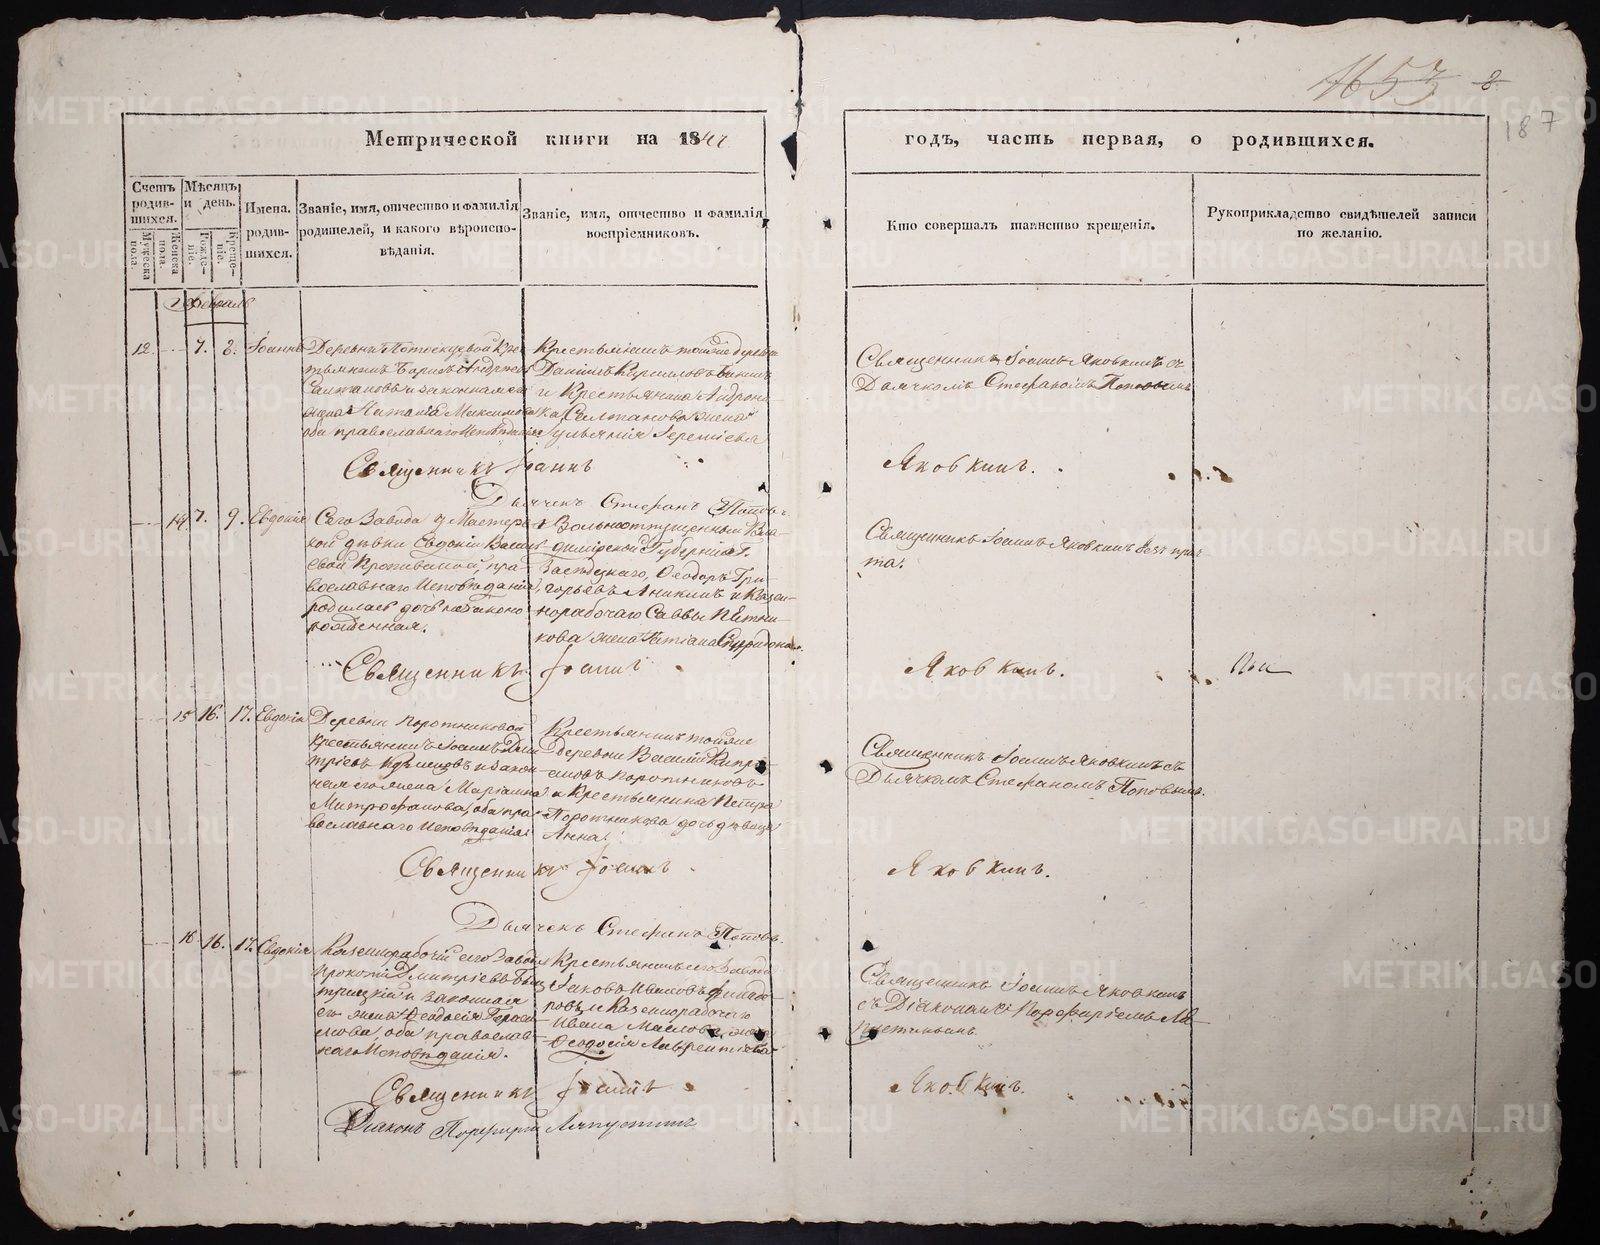 1653 8
187
Метрической книги на 1847
годъ, часть первая, о родившихся.
Счетъ родив-шихся.
Мужеска пола.
Женска пола.
Мѣсяцъ и день.
Рожде-ніе.
Креще-ніе.
Имена. родив-шихся.
Званіе, имя, отчество и фамилія
родителей, и какого вѣроиспо-
вѣданія.
Званіе, имя, отчество и фамилія
воспріемниковъ.
Кто совершалъ таинство крещенія.
Рукоприкладство свидѣтелей записи
по желанію.
Февраль
12. 7. 8. Іоаннъ
Деревни Крес-
тьянинъ Борисъ Андреевъ
Салтановъ и законная его
жена Максимова
оба православнаго исповѣданія
Крестьянинъ тойже деревни
Даніилъ Кирилловъ
и Крестьянина Андрони-
ка Салтанова жена
Іуліанія
Священникъ Іоаннъ Яковкинъ съ
Дьячкомъ Стефаномъ Поповымъ
Священникъ Іоаннъ Яковкинъ.
Дьячекъ Стефанъ Поповъ.
14 7. 9. Евдокія
Сего Завода у Мастерс-
кой дѣвки Евдокіи Васил-
евой пра-
вославнаго исповѣданія,
родилась дочь незаконо-
рожденная.
Вольноотпущенный Вла-
димірской Губерніи
Ѳеодоръ Гри-
горьевъ Аникинъ и Казен-
норабочаго Саввы
кова жена Татіана Спиридонова
Священникъ Іоаннъ Яковкинъ безъ прич-
та.
Священникъ Іоаннъ Яковкинъ.
15 16. 17. Евдокія
Деревни Коротниковой
крестьянинъ Іоаннъ Дми-
тріевъ и закон-
ная его жена Маріамна
Митрофанова, оба пра-
вославнаго исповѣданія
Крестьянинъ тойже
деревни Василій Кипрі-
ановъ Коротниковъ
и Крестьянина Петра
Коротникова дочь дѣвица
Анна.
Священникъ Іоаннъ Яковкинъ съ
Дьячкомъ Стефаномъ Поповымъ.
Священникъ Іоаннъ Яковкинъ.
Дьячекъ Стефанъ Поповъ.
16 16. 17. Евдокія
Казеннорабочій сего Завода
Прокопій Дмитріевъ Быс-
трицкій и законная
его жена Ѳеодосія Гераси-
мова, оба православ-
наго исповѣданія.
Крестьянинъ сего Завода
Іаковъ Ивановъ
и Казеннорабочаго
Ивана Маслова жена
Ѳеодосія Лаврентьева
Священникъ Іоаннъ Яковкинъ
съ Діакономъ Порфиріемъ Ла-
пустинымъ.
Священникъ Іоаннъ Яковкинъ.
Діаконъ Порфирій Лапустинъ
METRIKI.GASO-URAL.RU